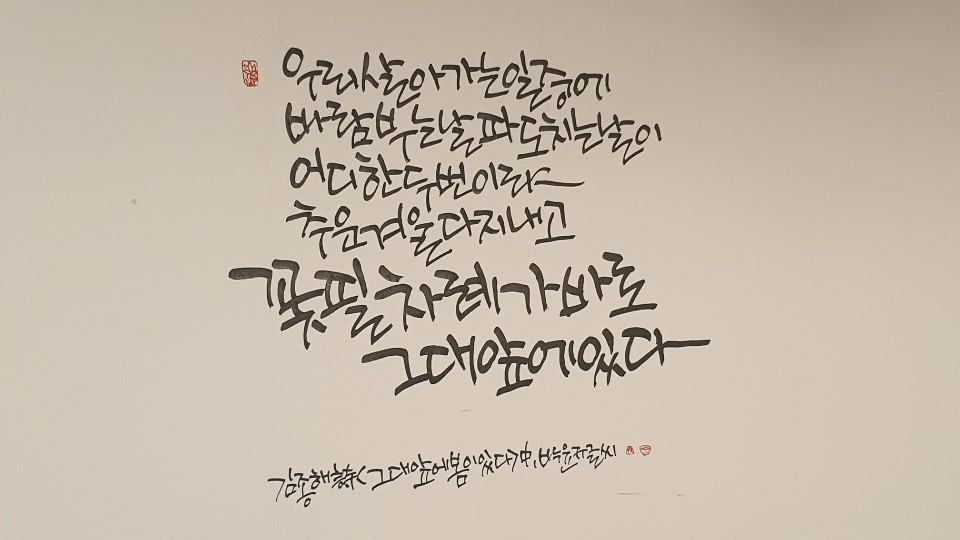 우리 살아가는 일 중에
바람 부는 날 파도치는 날이
어디 한두 번이랴
추운 겨울 다 지내고
꽃필 차례가 바로
그대 앞에 있다
김종해 詩 <그대 앞에 봄이 있다> 中, 글씨